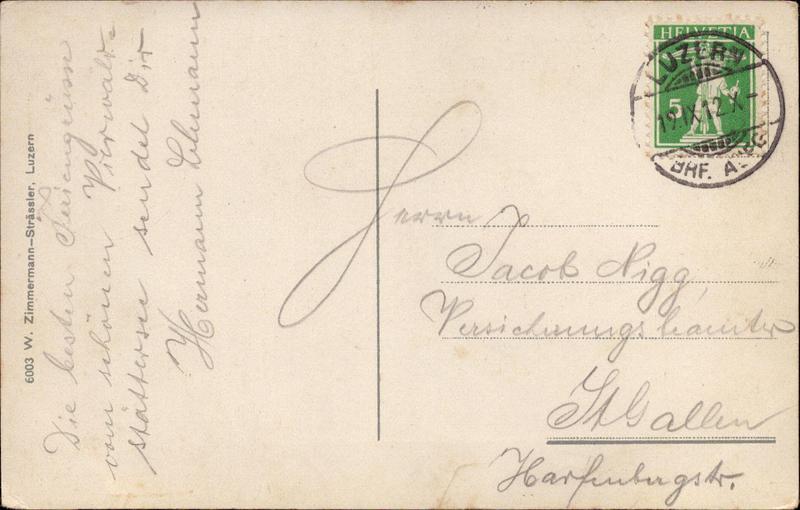 Die besten Feriengrüsse
vom schönen Vierwald-
stättersee sendet Dir
Hermann Lehmann
6003 W. Zimmermann-Strässler, Luzern
HELVETIA
5
LUZERN
19.IX.12.X-
BRF. A
Herrn
Jacob Nigg,
Versicherungsbeamter
St Gallen
Harfenbergstr.